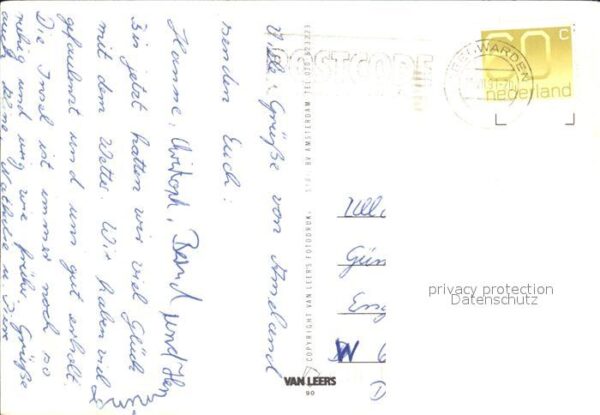 Viele Grüße von Ameland
senden Euch:
Hanne, Christoph, Bernd und
Bis jetzt hatten wir viel Glück
mit dem Wetter. Wir haben viel
gefaulenzt und uns gut erholt.
Die Insel ist immer noch so
ruhig und urig wie früher. Grüße
auch
POSTCODE
LEEUWARDEN
60 c
nederland
COPYRIGHT VAN LEER'S FOTODRUK
AMSTERDAM
VAN LEERS
90
Ulli
Gün
W 6
D
privacy protection
Datenschutz